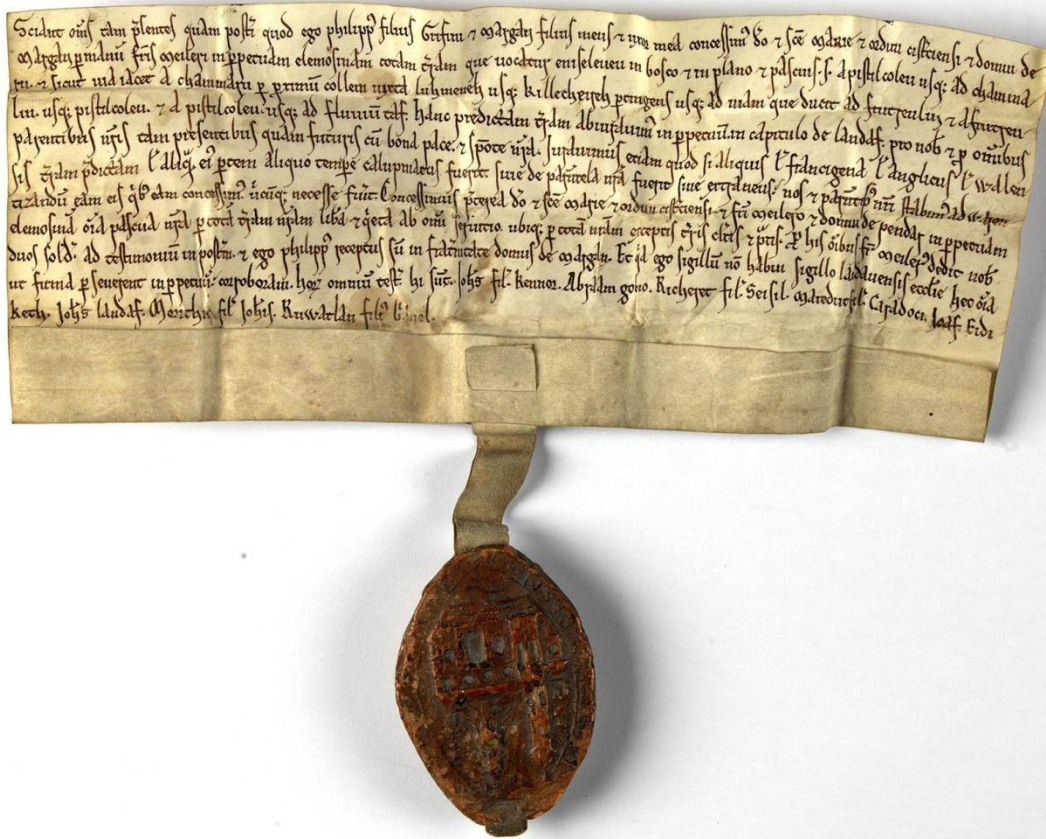 Sciant om̄s tam p̄sentes quam post̄i quod ego philipp᷒ filius Grifini ⁊ Margan filius meus ⁊ uxor mea concessim᷒ d̄o ⁊ s̄ce marie ⁊ ordini cisterciensi ⁊ domui de
Margan p̱ manū fr̄is meileri in p̱petuam elemosinam totam t̄ram que uocatur enseleueu in bosco ⁊ in plano ⁊ pascuis. s. a pistilcoleu usq; ad chamma
⁊ sicut uia iacet a chammaru p̱ p̱ximū collem iuxta luhmeneh usq; killecheyreh p̱tingens usq; ad uiam que ducit ad
lin. usq; pistilcoleu. ⁊ a pistilcoleu usq; ad fluuiū taf. hanc predictam t̄ram abiurauim᷒ in p̱petuū in capitulo de landaf. pro nob̄ ⁊ p̱ om̄ibus
parentibus n̄ris tam presentibus quam futuris cū bona pace. ⁊ sponte n̄ra. Iurauimus etiam quod si aliquis l̄ francigena l̄ anglicus l̄ Walen
sis t̄ram p̄dictam l̄ aliq̄ ei᷒ partem aliquo tempe calupniatus fuerit siue de parentela n̄ra fuerit siue extraneus. nos ⁊ parentes n̄ri stabim᷒ ad
tizandū eam eis q̄b᷒ eam concessim᷒ ubicūq; necesse fuīt. Concessimus p̄terea d̄o ⁊ s̄ce marie ⁊ ordini cisterciensi. ⁊ fr̄i meilero ⁊ domui de pendar in p̱petuam
elemosinā om̄ia pascua n̄ra p̱ totā t̄ram n̄ram lib̄a ⁊ q̄eta ab om̄i seruitio. ubiq; p̱ totā n̄ram exceptis t̄ris cltis ⁊ p̄tis. P̱ his om̄ibus fr̄ meiler᷒ dedit nob̄
duos sold̄. ad testimoniū in post̄m. ⁊ ego philipp᷒ receptus sū in fraternitate domus de margan. Et q̄a ego sigillū nō habui sigillo landauensis ecclīe hec om̄ia
ut firma p̱seuerent in p̱petuū corroboraui. hor᷒ omniū test̄ hi sunt. Joh̄s fil᷒ kennor. Abraam gono. Richeret fil᷒ Seisil. Mareduc fil᷒ Caradoci. Joaf. Erdi
keth. Joh̄s landaf. Morichu fil᷒ Joh̄is. Ruwatlan fil᷒